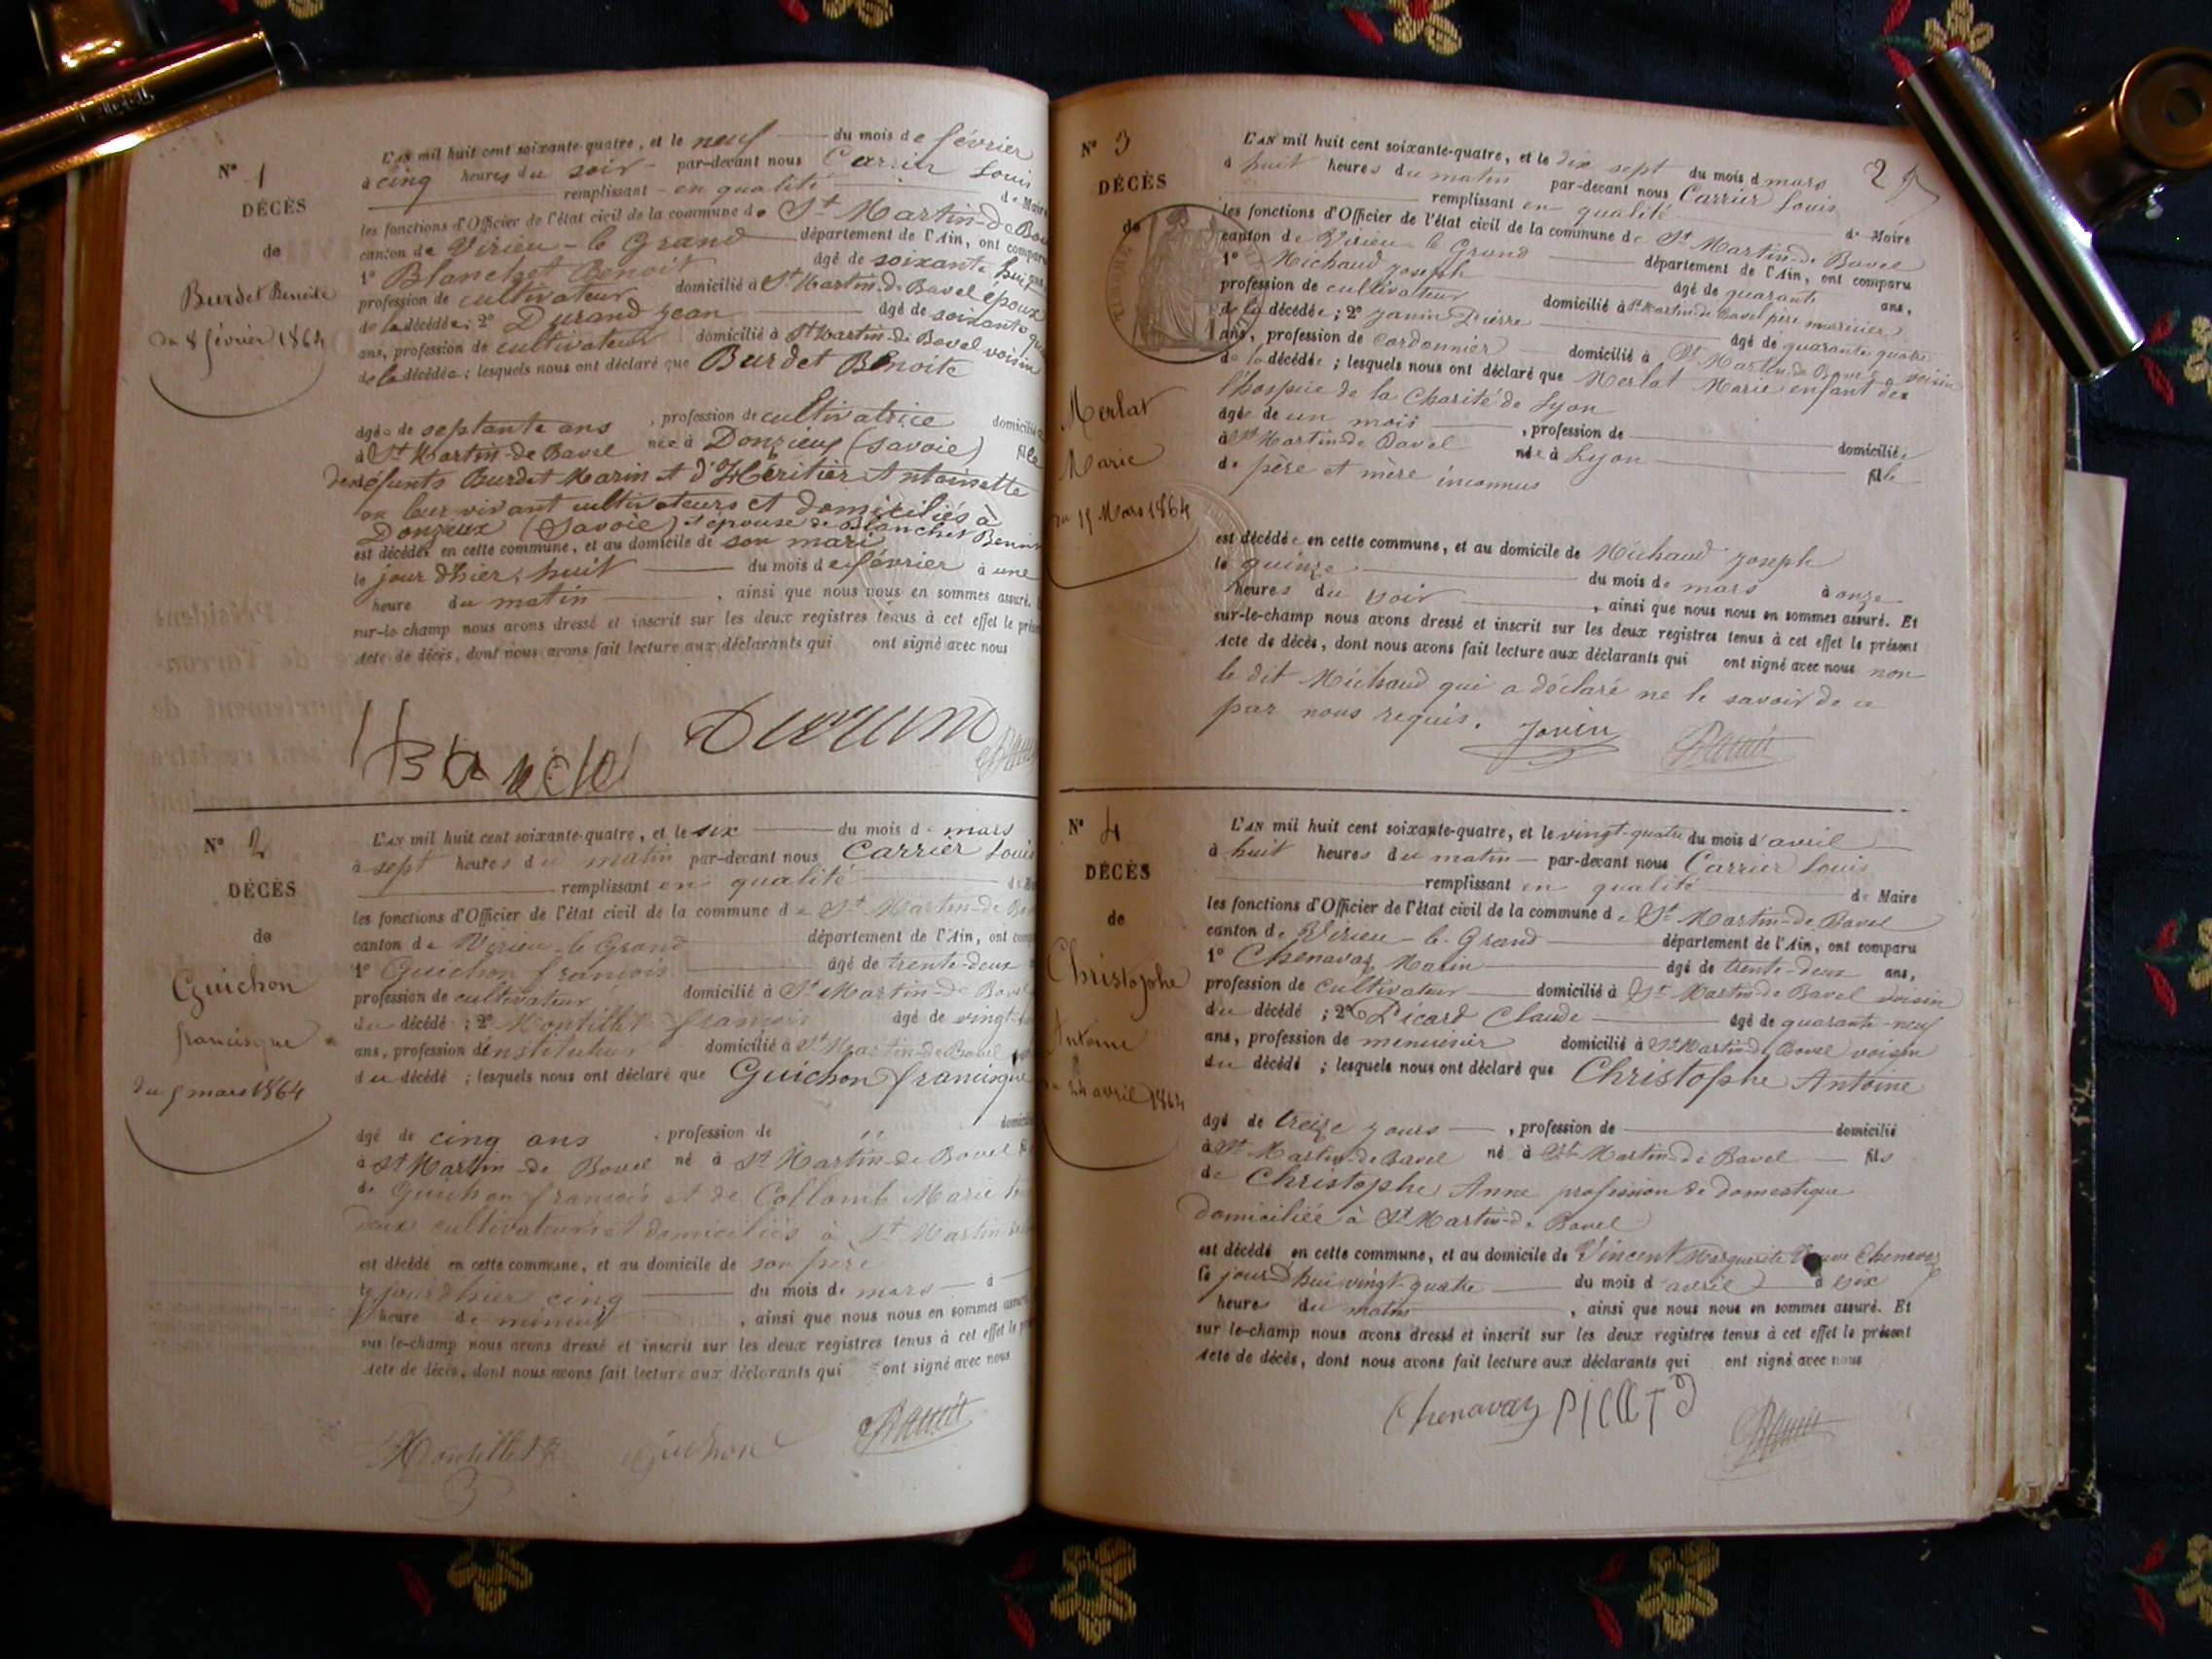 N° 1
DÉCÈS
de
Burdet Benoite
du 8 février 1864
L'AN mil huit cent soixante-quatre, et le neuf du mois de février
à cinq heures du soir par-devant nous Carrier Louis
remplissant en qualité de Maire
les fonctions d'Officier de l'état civil de la commune de St Martin-de Bav
canton de Virieu-le Grand département de l'Ain, ont comparu
1° Blanchet Benoit âgé de soixante huit ans,
profession de cultivateur domicilié à St Martin-de Bavel époux
de la décédée ; 2° Durand Jean âgé de soixante
ans, profession de cultivateur domicilié à St Martin-de Bavel voisin
de la décédée ; lesquels nous ont déclaré que Burdet Benoite
âgée de septante ans , profession de cultivatrice domiciliée
à St Martin-de Bavel née à Donzieux (Savoie) fille
de défunts Burdet Marin et d'Héritier Antoinette
en leur vivant cultivateurs et domiciliés à
Donzieux (Savoie) et épouse de Blanchet Benoit
est décédée en cette commune, et au domicile de son mari
le jour dhier huit du mois de février à une
heure du matin , ainsi que nous nous en sommes assuré.
sur-le champ nous avons dressé et inscrit sur les deux registres tenus à cet effet le prés
Acte de décès, dont nous avons fait lecture aux déclarants qui ont signé avec nous
Blanchet Durand
N° 2
DÉCÈS
de
Guichon
francisque
du 5 mars 1864
L'AN mil huit cent soixante-quatre, et le six du mois de mars
à sept heures du matin par-devant nous Carrier Louis
remplissant en qualité de Ma
les fonctions d'Officier de l'état civil de la commune de St Martin-de Ba
canton de Virieu-le Grand département de l'Ain, ont comp
1° Guichon françois âgé de trente-deux
profession de cultivateur domicilié à St Martin-de Bavel
du décédé ; 2° Montillet françois âgé de vingt
ans, profession d'instituteur domicilié à St Martin-de Bavel
du décédé ; lesquels nous ont déclaré que Guichon francisque
âgé de cinq ans , profession de " domicilié
à St Martin-de Bavel né à St Martin-de Bavel fi
de Guichon françois et de Collomb Marie
deux cultivateurs et domiciliés à St Martin
est décédé en cette commune, et au domicile de son père
le jour dhier cinq du mois de mars à
heure de minuit , ainsi que nous nous en sommes assuré
sur le-champ nous avons dressé et inscrit sur les deux registres tenus à cet effet le pr
Acte de décès, dont nous avons fait lecture aux déclarants qui ont signé avec nous
Montillet Guichon
N° 3
DÉCÈS
de
Merlat
Marie
du 15 Mars 1864
2
L'AN mil huit cent soixante-quatre, et le dix sept du mois d mars
à huit heures du matin par-devant nous Carrier Louis
remplissant en qualité de Maire
les fonctions d'Officier de l'état civil de la commune de St Martin-de Bavel
canton de Virieu le Grand département de l'Ain, ont comparu
1° Michaud Joseph âgé de quarante ans,
profession de cultivateur domicilié à St Martin-de Bavel père nourricier
de la décédée ; 2° Janin Pierre âgé de quarante quatre
ans, profession de cordonnier domicilié à St Martin-de Bavel voisin
de la décédée ; lesquels nous ont déclaré que Merlat Marie enfant de
l'hospice de la Charité de Lyon
âgée de un mois , profession de domiciliée
à St Martin-de Bavel née à Lyon fille
de père et mère inconnus
est décédée en cette commune, et au domicile de Michaud Joseph
le quinze du mois de mars à onze
heures du soir , ainsi que nous nous en sommes assuré. Et
sur-le-champ nous avons dressé et inscrit sur les deux registres tenus à cet effet le présent
Acte de décès, dont nous avons fait lecture aux déclarants qui ont signé avec nous non
le dit Michaud qui a déclaré ne le savoir de ce
par nous requis.
N° 4
DÉCÈS
de
Christophe
Antoine
du 24 avril 1864
L'AN mil huit cent soixante-quatre, et le vingt-quatre du mois d'avril
à huit heures du matin par-devant nous Carrier Louis
remplissant en qualité de Maire
les fonctions d'Officier de l'état civil de la commune de St Martin-de Bavel
canton de Virieu-le-Grand département de l'Ain, ont comparu
1° Chenavaz Marin âgé de trente-deux ans,
profession de cultivateur domicilié à St Martin-de Bavel voisin
du décédé ; 2° Picard Claude âgé de quarante-neuf
ans, profession de menuisier domicilié à St Martin-de Bavel voisin
du décédé ; lesquels nous ont déclaré que Christophe Antoine
âgé de treize jours , profession de domicilié
à St Martin-de Bavel né à St Martin-de Bavel fils
de Christophe Anne profession de domestique
domiciliée à St Martin-de Bavel
est décédé en cette commune, et au domicile de Vincent Marguerite Veuve Chenavaz
le jour d'hui vingt-quatre du mois d'avril à six
heures du matin , ainsi que nous nous en sommes assuré. Et
sur le-champ nous avons dressé et inscrit sur les deux registres tenus à cet effet le présent
Acte de décès, dont nous avons fait lecture aux déclarants qui ont signé avec nous
Chenavaz PICARD